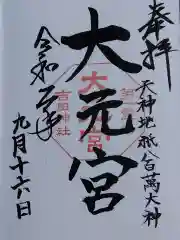 奉拝
天神地祇八百萬大神
大元宮
吉田神社
令和二年
九月十六日